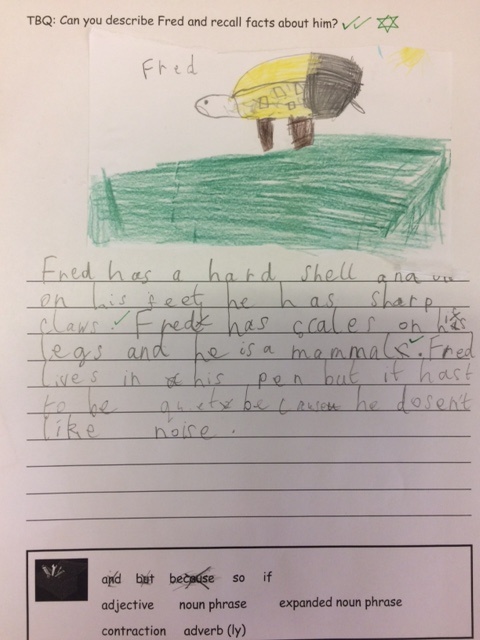 TBQ: Can you describe Fred and recall facts about him?
Fred
Fred has a hard shell and
on his feet he has sharp
claws. Fred has scales on his
legs and he is a mammal. Fred
lives in his pen but it hast
to be quiet because he dosen't
like noise.
and but because so if
adjective noun phrase expanded noun phrase
contraction adverb (ly)